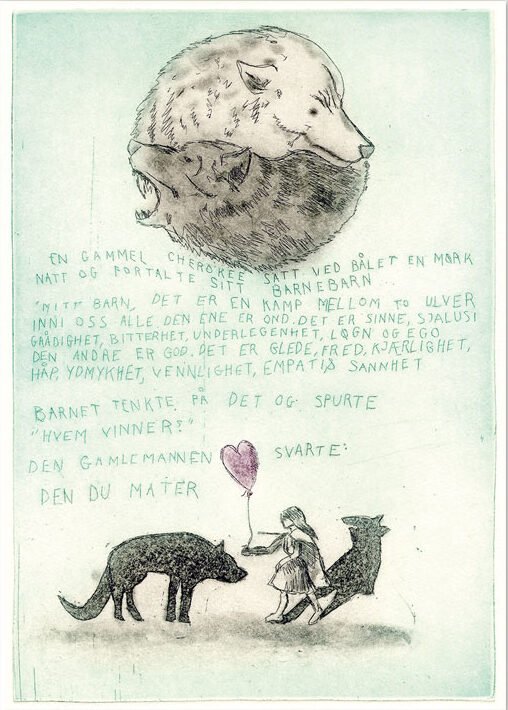 EN GAMMEL CHEROKEE SATT VED BÅLET EN MØRK
NATT OG FORTALTE SITT BARNEBARN
"MITT BARN, DET ER EN KAMP MELLOM TO ULVER
INNI OSS ALLE. DEN ENE ER OND. DET ER SINNE, SJALUSI
GRÅDIGHET, BITTERHET, UNDERLEGENHET, LØGN OG EGO
DEN ANDRE ER GOD. DET ER GLEDE, FRED, KJÆRLIGHET,
HÅP, YDMYKHET, VENNLIGHET, EMPATI & SANNHET
BARNET TENKTE PÅ DET OG SPURTE
"HVEM VINNER?"
DEN GAMLEMANNEN SVARTE:
DEN DU MATER